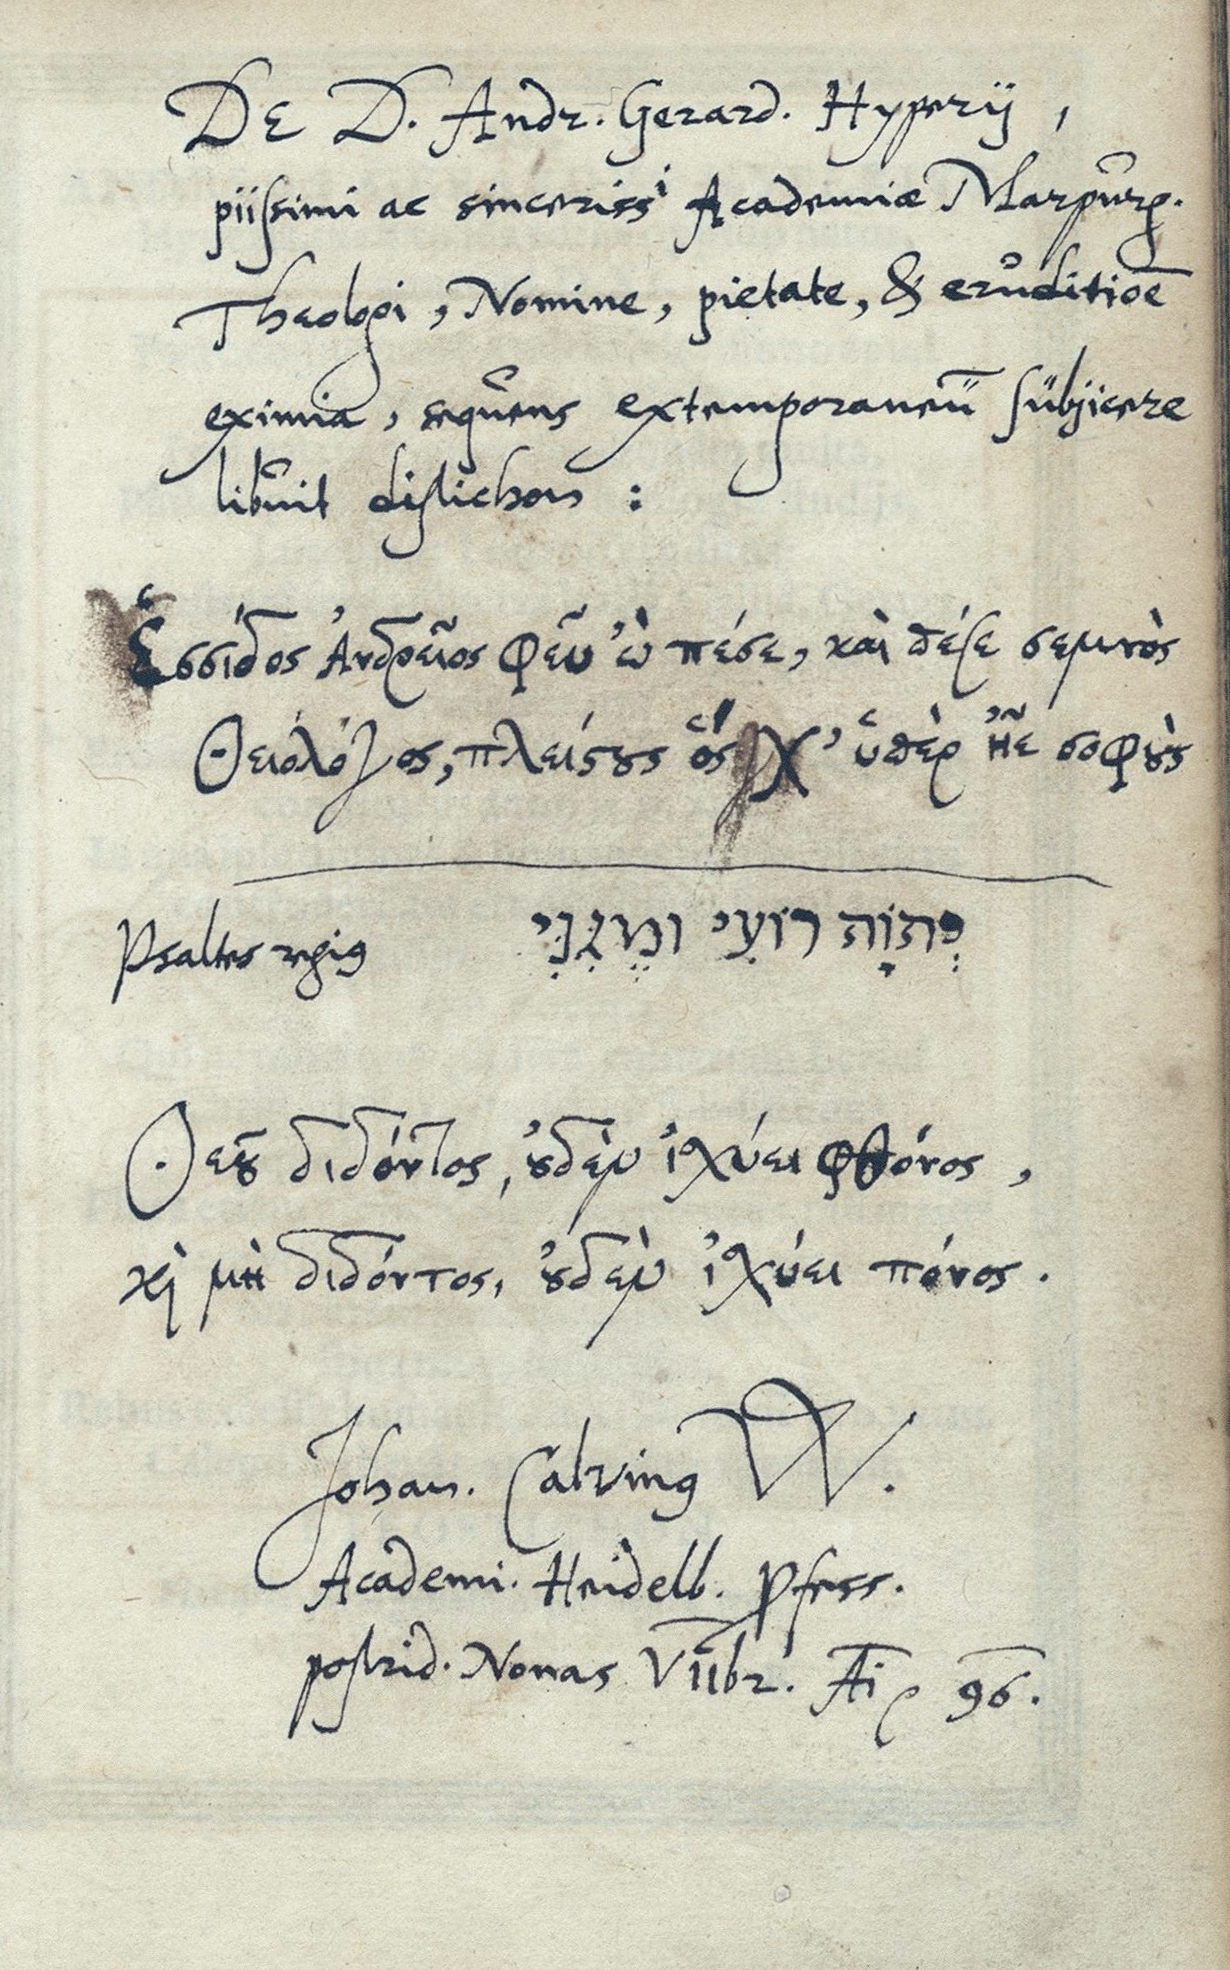 DE D. Andr. Gerard. Hyperij,
piissimi ac sinceriss^i Academiæ Marpurg.
Theologi, Nomine, pietate, & eruditiōe
eximia, sequens extemporaneū subjicere
libuit distichon :
Ἑσσίδος Ἀνδρεῖος φεῦ ὢ πέσε, καὶ πέσε σεμνὸς
Θειολόγος, πλείστους ὅς χ’ ὑπὲρ ἦε σοφοὺς
Psaltes regius יְהוָֹה רוֹעִי וּמָגִנִּי
Θεοῦ διδόντος, οὐδὲν ἰσχύει φθόνος,
καὶ μὴ διδόντος, οὐδὲν ἰσχύει πόνος.
Johan. Calvinus W.
Academi. Heidelb. Pfess.
postrid. Nonas VIIbr. Ai 96.